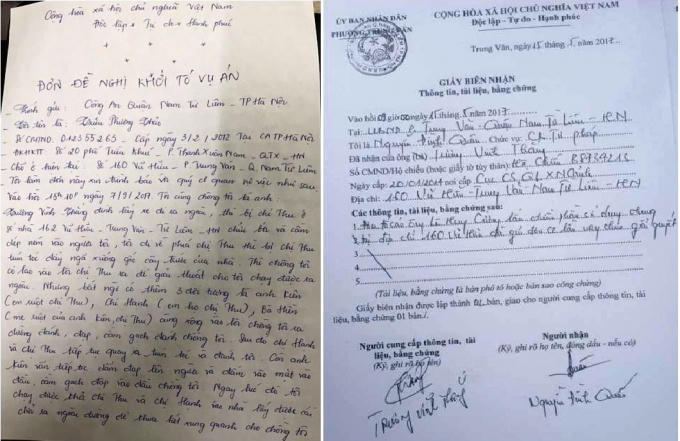 Cộng hòa xã hội chủ nghĩa Việt Nam
Độc lập * Tự do * Hạnh phúc
ĐƠN ĐỀ NGHỊ KHỞI TỐ VỤ ÁN
Kính gửi: Công An Quận Nam Từ Liêm - TP Hà Nội
Tôi tên là: Phương Thảo
Số CMND. 012355265 - Cấp ngày 3/2/2012 Tại CA TP Hà Nội
ĐKHKTT Số 20 phố Triều Khúc P. Thanh Xuân Nam - QTX - HN
Chỗ ở hiện tại: Số 160 Vũ Hữu - P Trung Văn - Q Nam Từ Liêm
Tôi làm đơn này xin trình báo và quý cơ quan về việc như sau
Vào hồi 18h10' ngày 7/9/2017. Tôi cùng chồng tôi là anh
Trương Viết Thắng đang lấy xe đi ra ngoài, thì bị chị Thu ở
số nhà 162 Vũ Hữu - Trung Văn - Từ Liêm - HN chửi bới và cầm
dép ném vào người tôi, tôi đi về phía chị Thu thì bị chị Thu
túm tóc đẩy ngã xuống gốc cây trước cửa nhà. Thì chồng tôi
có lao vào lôi chị Thu ra để giải thoát cho tôi chạy được ra
ngoài. Nhưng bất ngờ có thêm 3 đối tượng là anh Kiên
(em ruột chị Thu), Chị Hạnh (em họ chị Thu), Bà Hiền
(mẹ ruột của anh Kiên, chị Thu) cùng xông vào lôi chồng tôi ra
đường đánh, đạp, cầm gạch đánh chồng tôi. Sau đó chị Hạnh
và chị Thu tiếp tục quay ra túm tóc và đánh tôi. Còn anh
Kiên vẫn tiếp tục đấm đạp lên người và đấm vào mặt vào
đầu, cầm gạch đập vào đầu chồng tôi. Ngay lúc đó tôi
chạy được thì chị Thu và chị Hạnh vào nhà lấy được cái
chổi ra ngoài đường để khua bất xung quanh cho chồng tôi
ỦY BAN NHÂN DÂN
PHƯỜNG TRUNG VĂN
CỘNG HÒA XÃ HỘI CHỦ NGHĨA VIỆT NAM
Độc lập - Tự do - Hạnh phúc
Trung Văn, ngày 15 tháng 5 năm 2017
GIẤY BIÊN NHẬN
Thông tin, tài liệu, bằng chứng
Vào hồi 09 giờ 00 ngày 15 tháng 5 năm 2017
Tại: UBND P. Trung Văn - Quận Nam Từ Liêm - HN
Tôi là Nguyễn Đình Quốc Chức vụ: CC Tư pháp
Đã nhận của ông (bà) Trương Viết Thắng
Số CMND/Hộ chiếu (hoặc giấy tờ tùy thân): Hộ Chiếu
Ngày cấp: 20/01/2014 nơi cấp Cục
Địa chỉ: 160 Vũ Hữu - Trung Văn Nam Từ Liêm - HN
Các thông tin, tài liệu, bằng chứng sau:
1.
2. tại địa chỉ 160 Vũ Hữu giải quyết
3
4
5
(Tài liệu, bằng chứng là bản phô tô hoặc bản sao công chứng)
Giấy biên nhận được lập thành 02 bản, giao cho người cung cấp thông tin, tài
liệu, bằng chứng 01 bản./.
Người cung cấp thông tin, tài
liệu, bằng chứng
(Ký, ghi rõ họ tên)
Người nhận
(Ký, ghi rõ họ tên, đóng dấu - nếu có)
Trương Viết Thắng
Nguyễn Đình Quốc